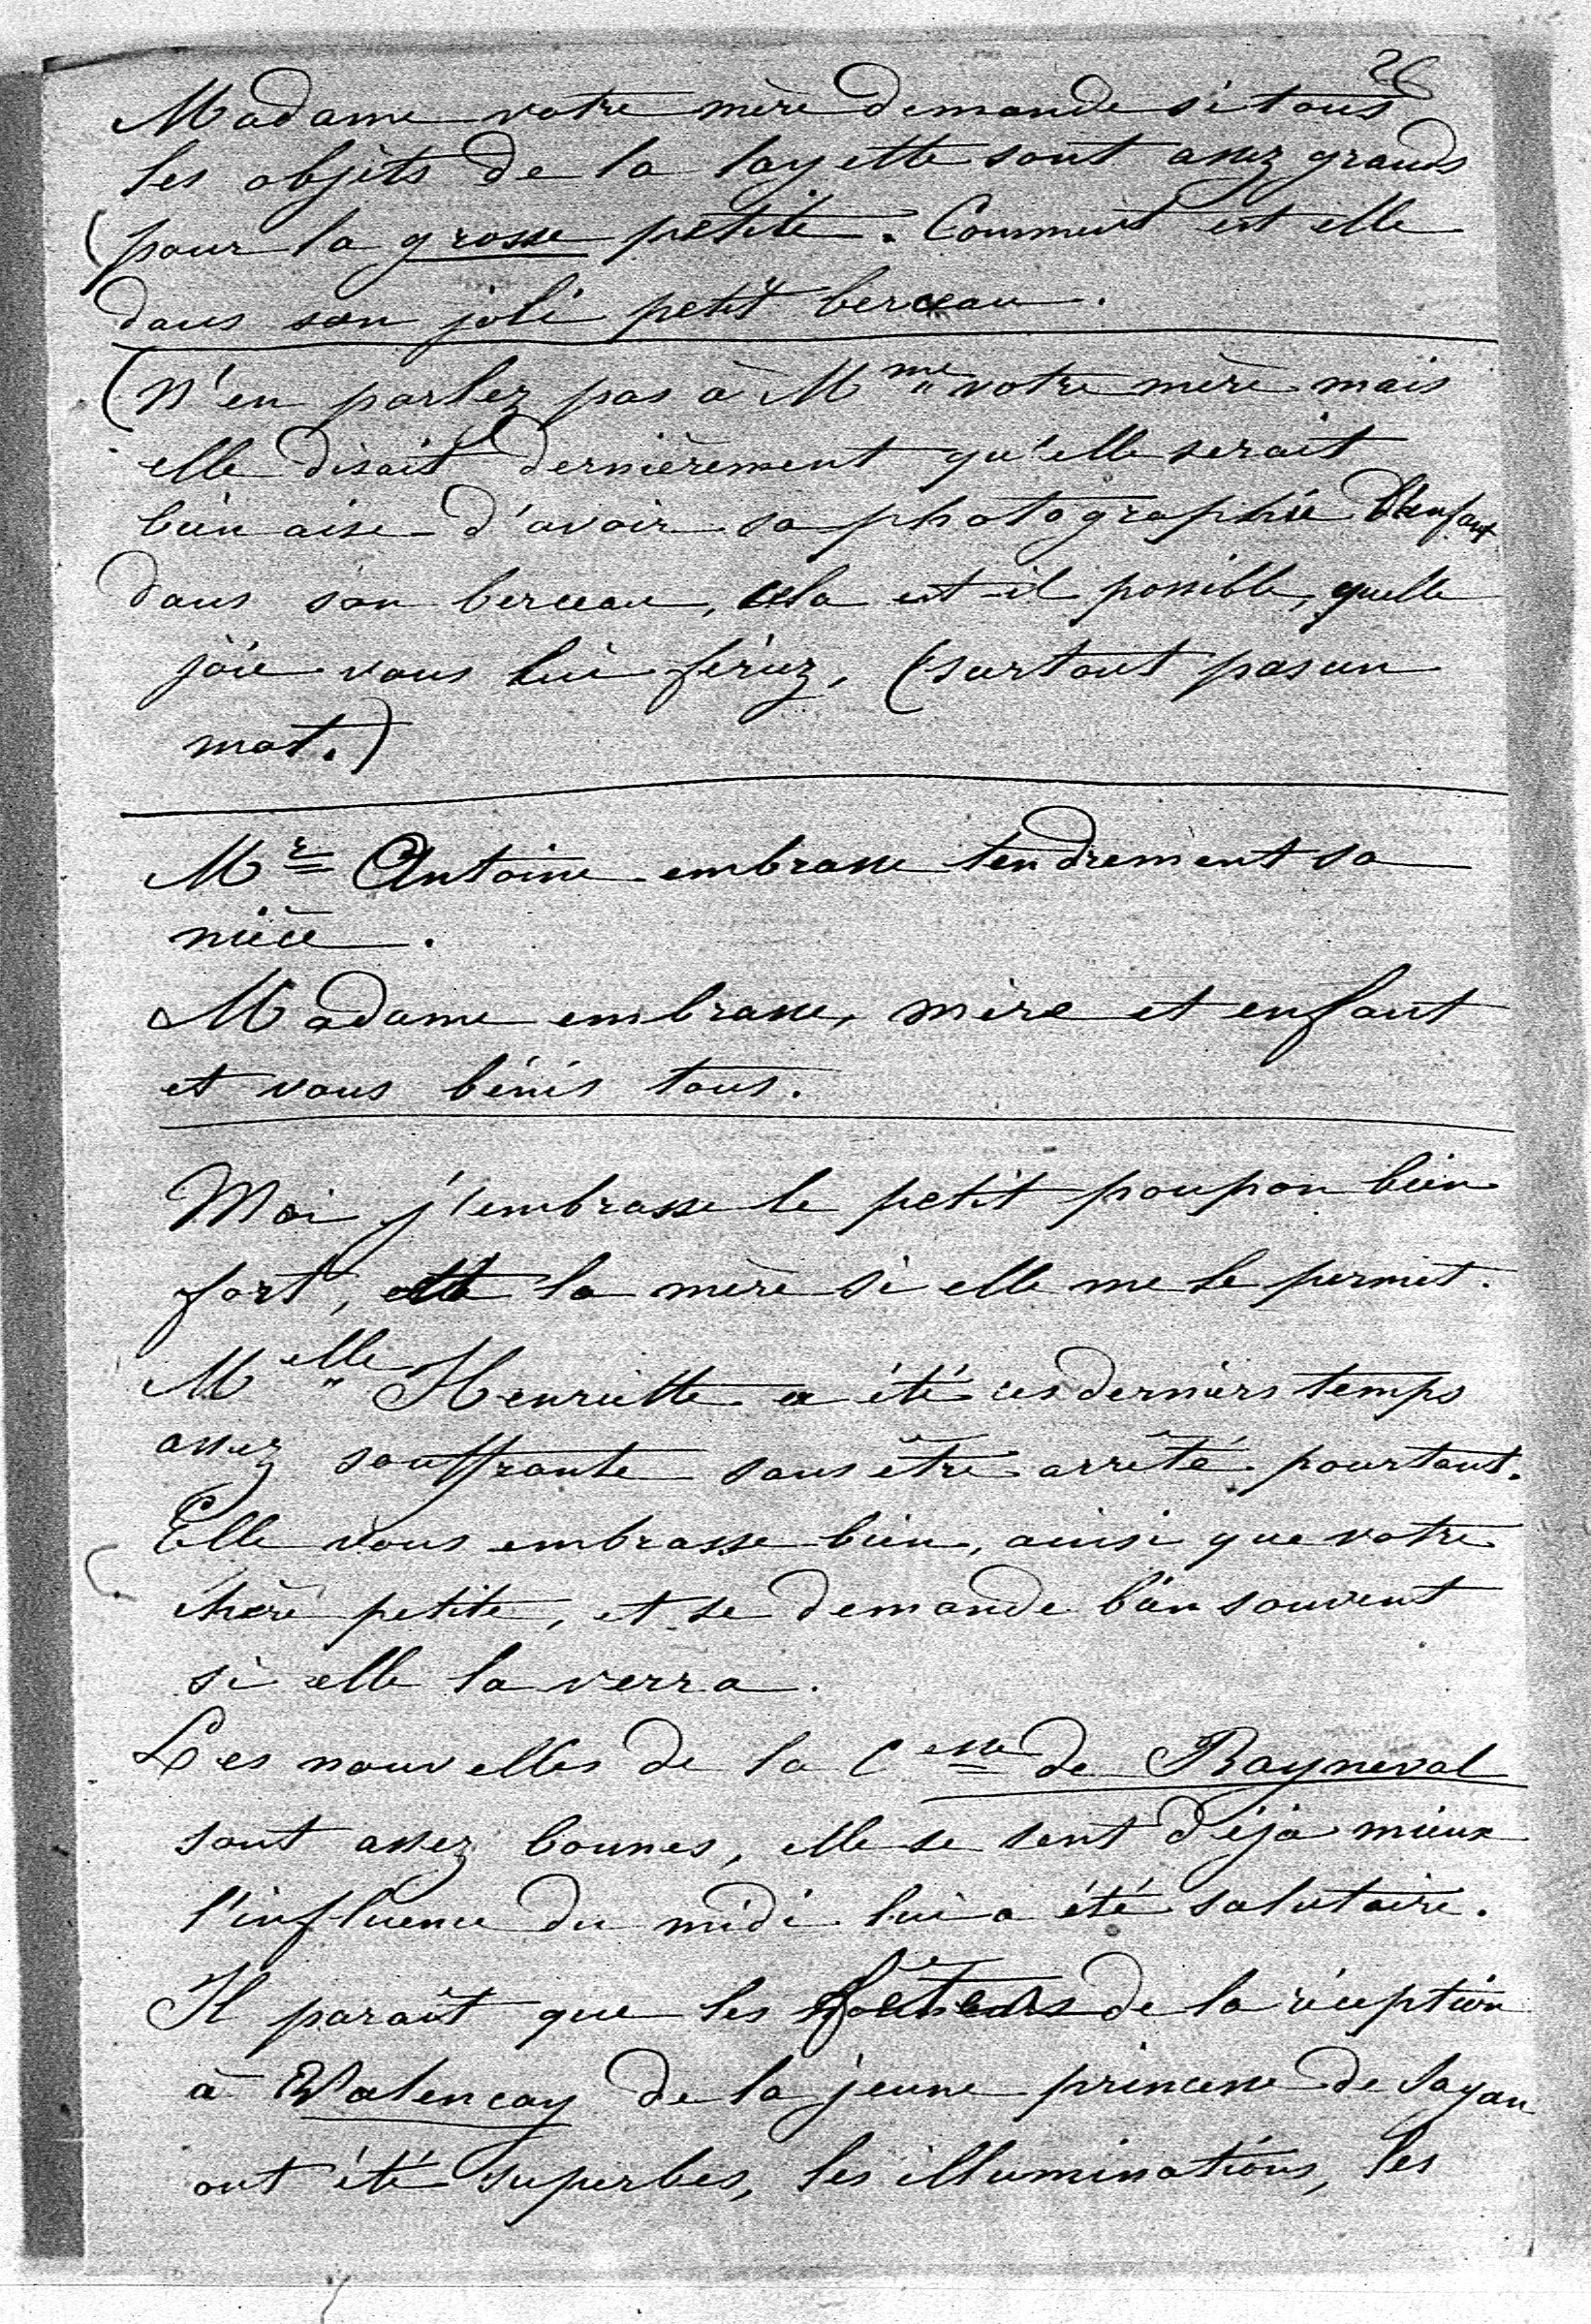 26
Madame votre mère demande si tous
les objets de la layette sont assez grands
(pour la grosse petite. Comment est elle
dans son joli petit berceau.
(N'en parlez pas à Mme votre mère mais
elle disait dernièrement qu'elle serait
bien aise d'avoir sa photographie
dans son berceau, cela est-il possible, quelle
joie vous lui feriez, (surtout pas un
mot.)
Mr Antoine embrasse tendrement sa
nièce.
Madame embrasse, mère et enfant
et vous bénis tous.
Moi j'embrasse le petit poupon bien
fort, et la mère si elle me le permet.
Melle Henriette a été ces derniers temps
assez souffrante sans être arrêté pourtant.
Elle vous embrasse bien, ainsi que votre
chère petite, et se demande bien souvent
si elle la verra.
Les nouvelles de la Cesse de Rayneval
sont assez bonnes, elle se sent déjà mieux
l'influence du midi lui a été salutaire.
Il paraît que les fêtes de la réception
à Valencay de la jeune princesse de Sagan
ont été superbes, les illuminations, les